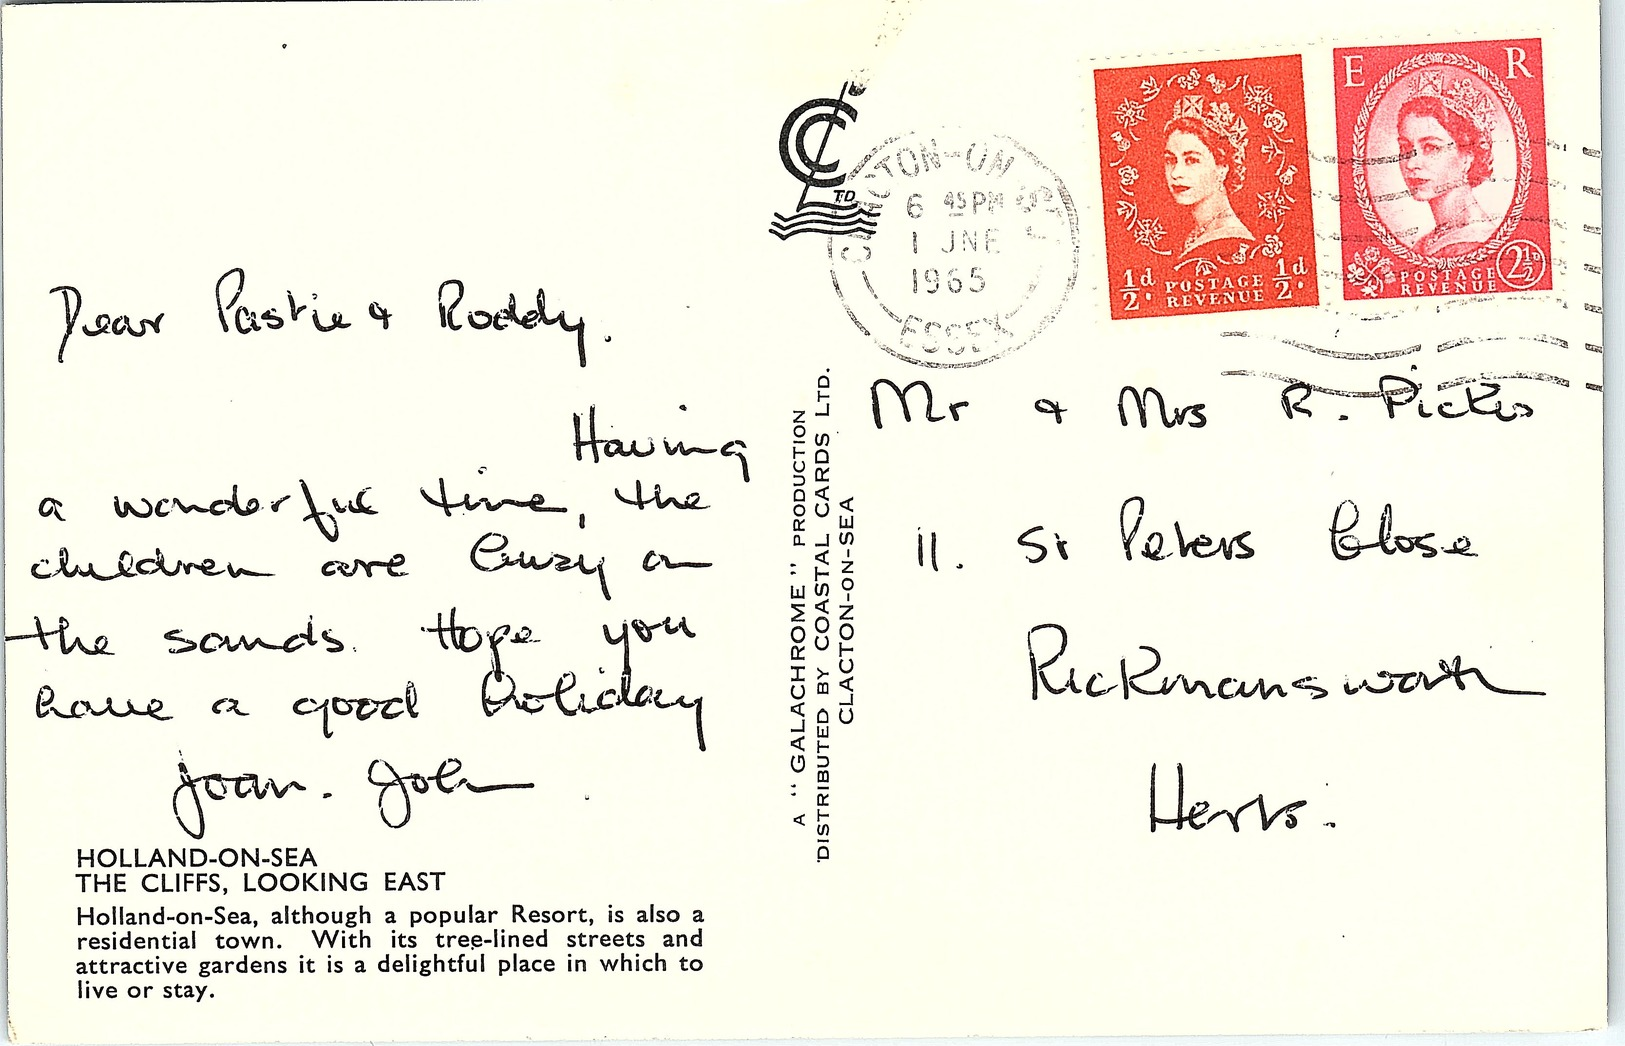 Dear Pastie & Roddy.
Having
a wonderful time, the
children are busy on
the sands. Hope you
have a good holiday
Joan. John
HOLLAND-ON-SEA
THE CLIFFS, LOOKING EAST
Holland-on-Sea, although a popular Resort, is also a
residential town. With its tree-lined streets and
attractive gardens it is a delightful place in which to
live or stay.
A "GALACHROME" PRODUCTION
DISTRIBUTED BY COASTAL CARDS LTD.
CLACTON-ON-SEA
CC LTD
CLACTON-ON-SEA
6 45 PM
1 JNE
1965
ESSEX
½d POSTAGE REVENUE ½d
E R
POSTAGE REVENUE 2½D
Mr & Mrs R.
11. St Peters Close
Rickmansworth
Herts.